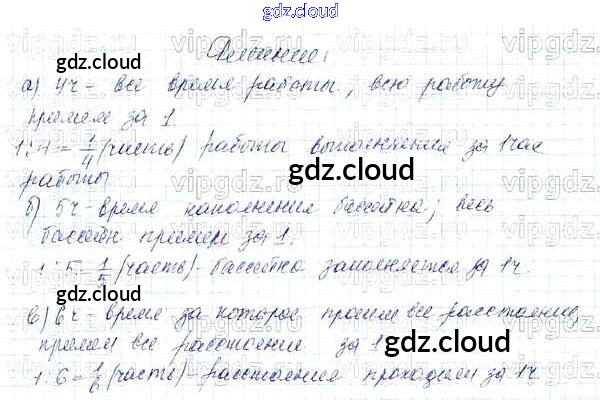 gdz.cloud
Решение:
а) 4ч - все время работы, всю работу
примем за 1.
1:4=1/4 (часть) работы выполнения за 1 час
работы
gdz.cloud
б) 5ч - время наполнения бассейна; весь
бассейн примем за 1.
1:5=1/5 (часть) - бассейна заполняется за 1ч.
gdz.cloud
в) 6ч - время за которое прошли все расстояние,
примем все расстояние за 1
gdz.cloud
1:6=1/6 (часть) - расстояния проходим за 1ч